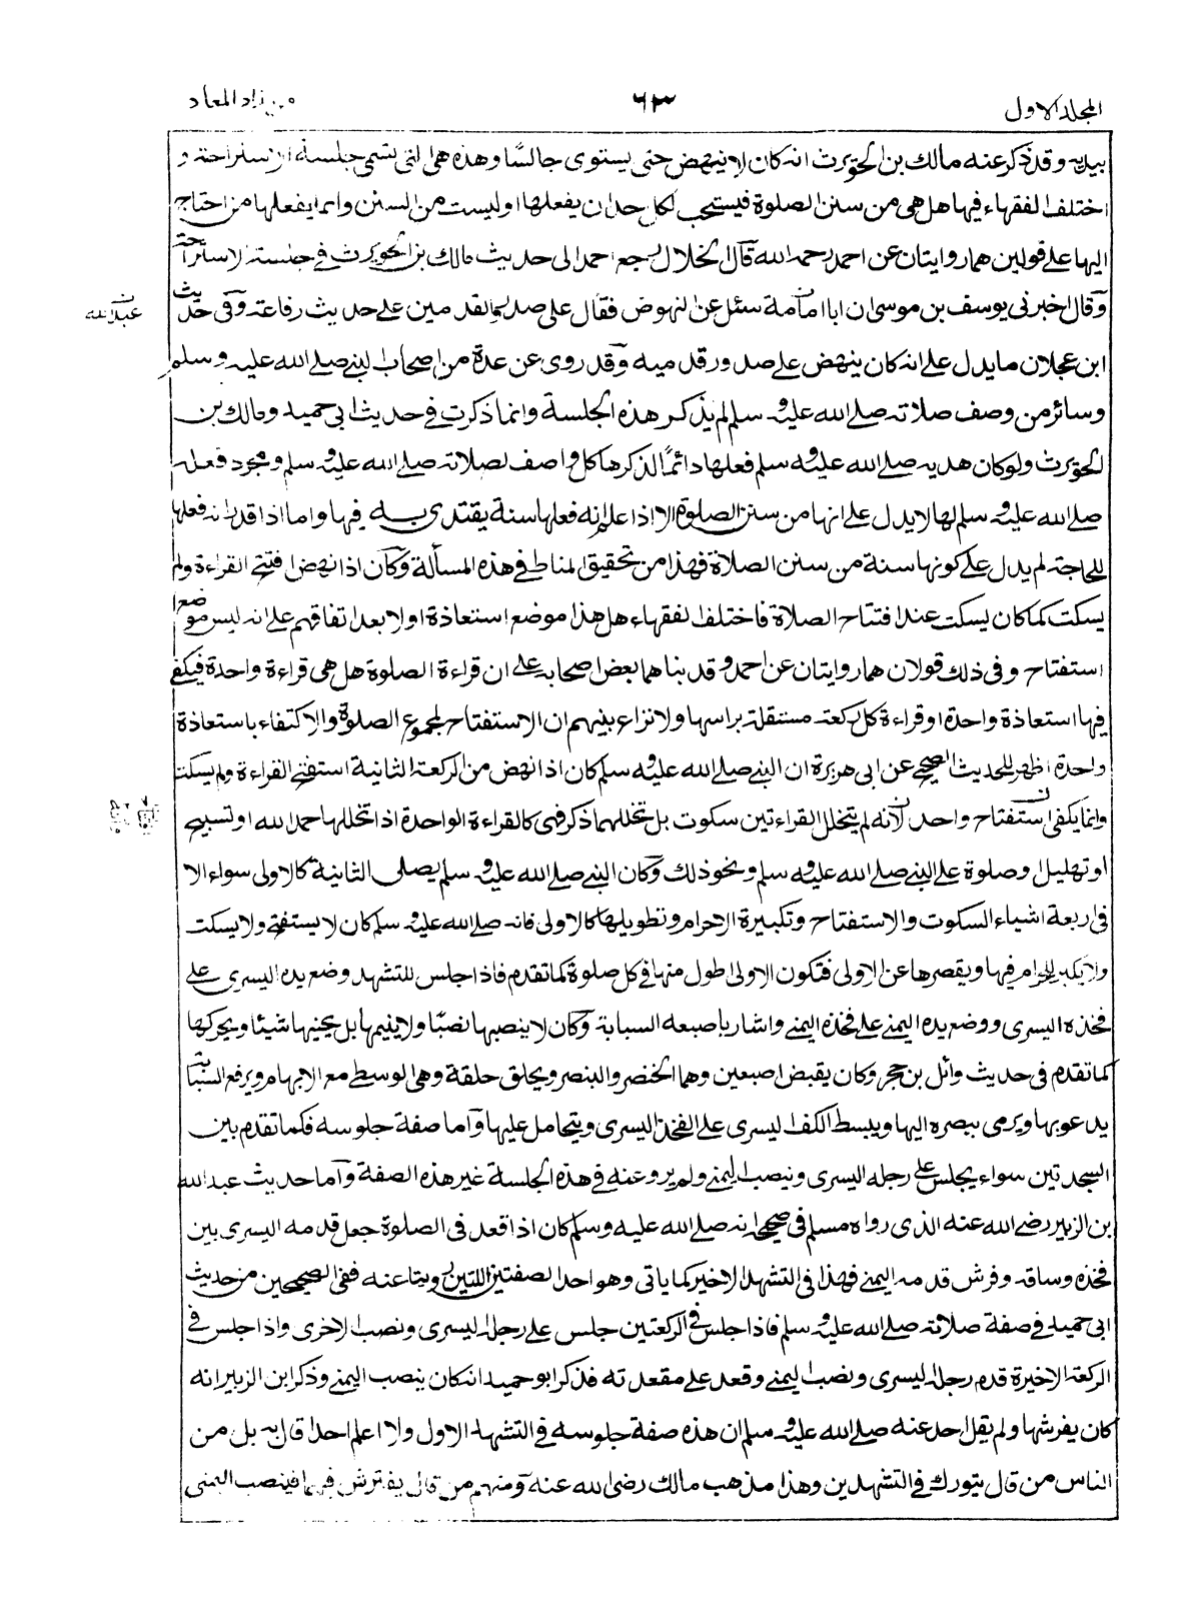 المجلد الاول
٦٣
من زاد المعاد
بيديه وقد ذكر عنه مالك بن الحويرث انه كان لا ينهض حتى يستوى جالسًا وهذه هى التى تسمى جلسة الاستراحة و
اختلف الفقهاء فيها هل هى من سنن الصلوة فيستحب لكل احد ان يفعلها اوليست من السنن وانما يفعلها من احتاج
اليها على قولين هما روايتان عن احمد رحمه الله قال الخلال رجع احمد الى حديث مالك بن الحويرث فى جلسة الاستراحة
وقال اخبرنى يوسف بن موسى ان ابا امامة سئل عن النهوض فقال على صدور القدمين على حديث رفاعة وفى حديث
عبد الله
ابن عجلان ما يدل على انه كان ينهض على صدور قدميه وقد روى عن عدة من اصحاب النبى صلى الله عليه وسلم
وسائر من وصف صلاته صلى الله عليه وسلم لم يذكر هذه الجلسة وانما ذكرت فى حديث ابى حميد ومالك بن
الحويرث ولوكان هديه صلى الله عليه وسلم فعلها دائمًا لذكرها كل واصف لصلاته صلى الله عليه وسلم ومجرد فعله
صلى الله عليه وسلم لها لا يدل على انها من سنن الصلوة الا اذا علم انه فعلها سنة يقتدى به فيها واما اذا قدر انه فعلها
للحاجة لم يدل على كونها سنة من سنن الصلاة فهذا من تحقيق المناط فى هذه المسألة وكان اذا نهض افتتح القراءة ولم
يسكت كما كان يسكت عند افتتاح الصلاة فاختلف الفقهاء هل هذا موضع استعاذة او لا بعد اتفاقهم على انه ليس موضع
استفتاح وفى ذلك قولان هما روايتان عن احمد وقد بناهما بعض اصحابه على ان قراءة الصلوة هل هى قراءة واحدة فيكفى
فيها استعاذة واحدة او قراءة كل ركعة مستقلة براسها ولا نزاع بينهم ان الاستفتاح لمجموع الصلوة والاكتفاء باستعاذة
واحدة اظهر للحديث الصحيح عن ابى هريرة ان النبى صلى الله عليه وسلم كان اذا نهض من الركعة الثانية استفتح القراءة ولم يسكت
وانما يكفى استفتاح واحد لانه لم يتخلل القراءتين سكوت بل تخللهما ذكر فهى كالقراءة الواحدة اذا تخللها حمد الله او تسبيح
او تهليل وصلوة على النبى صلى الله عليه وسلم ونحو ذلك وكان النبى صلى الله عليه وسلم يصلى الثانية كالاولى سواء الا
فى اربعة اشياء السكوت والاستفتاح وتكبيرة الاحرام وتطويلها كالاولى فانه صلى الله عليه وسلم كان لا يستفتح ولا يسكت
ولا يكبر للاحرام فيها ويقصرها عن الاولى فتكون الاولى اطول منها فى كل صلوة كما تقدم فاذا جلس للتشهد وضع يده اليسرى على
فخذه اليسرى ووضع يده اليمنى على فخذه اليمنى واشار باصبعه السبابة وكان لا ينصبها نصبًا ولا ينيمها بل يحنيها شيئا ويحركها
كما تقدم فى حديث وائل بن حجر وكان يقبض اصبعين وهما الخنصر والبنصر ويحلق حلقة وهى الوسطى مع الابهام ويرفع السبابة
يدعوبها ويرمى ببصره اليها ويبسط الكف اليسرى على الفخذ اليسرى ويتحامل عليها واما صفة جلوسه فكما تقدم بين
السجدتين سواء يجلس على رجله اليسرى وينصب اليمنى ولم يرو عنه فى هذه الجلسة غير هذه الصفة واما حديث عبد الله
بن الزبير رضى الله عنه الذى رواه مسلم فى صحيحه انه صلى الله عليه وسلم كان اذا قعد فى الصلوة جعل قدمه اليسرى بين
فخذه وساقه وفرش قدمه اليمنى فهذا فى التشهد الاخير كما ياتى وهو احد الصفتين اللتين رويتا عنه ففى الصحيحين من حديث
ابى حميد فى صفة صلاته صلى الله عليه وسلم فاذا جلس فى الركعتين جلس على رجله اليسرى ونصب الاخرى واذا جلس فى
الركعة الاخيرة قدم رجله اليسرى ونصب اليمنى وقعد على مقعدته فذكر ابو حميد انه كان ينصب اليمنى وذكر ابن الزبير انه
كان يفرشها ولم يقل احد عنه صلى الله عليه وسلم ان هذه صفة جلوسه فى التشهد الاول ولا اعلم احدا قال به بل من
الناس من قال يتورك فى التشهدين وهذا مذهب مالك رضى الله عنه ومنهم من قال يفترش فيهما فينصب اليمنى